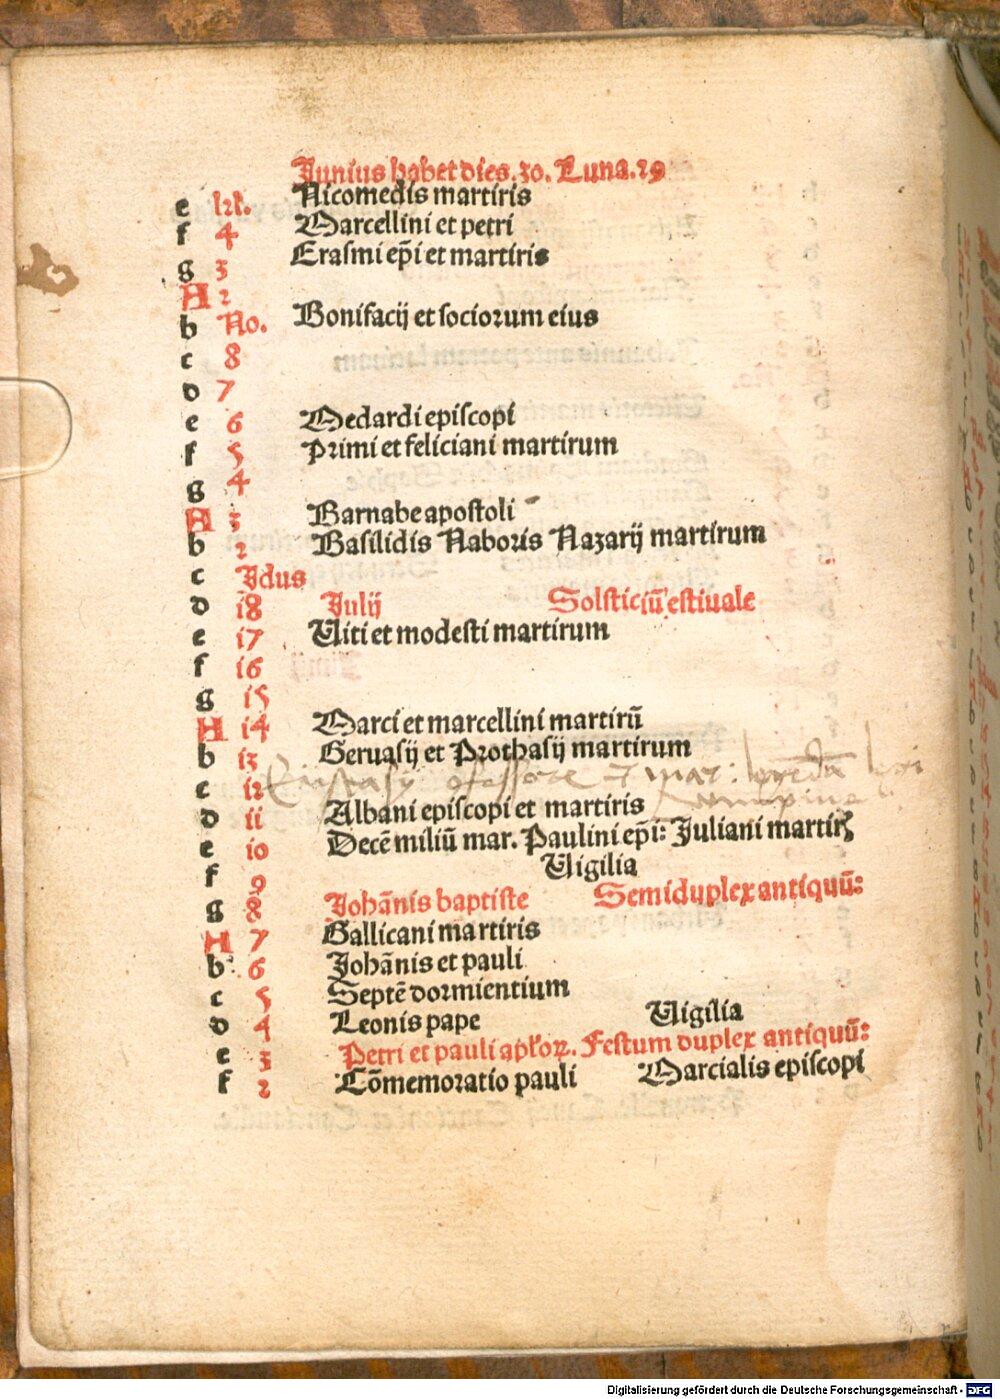 Junius habet dies. 30. Luna. 29
e kl. Nicomedis martiris
f 4 Marcellini et petri
g 3 Erasmi ep̄i et martiris
A 2
b No. Bonifacij et sociorum eius
c 8
d 7
e 6 Medardi episcopi
f 5 Primi et feliciani martirum
g 4
A 3 Barnabe apostoli
b 2 Basilidis Naboris Nazarij martirum
c Idus
d 18 Julij Solsticiū estiuale
e 17 Uiti et modesti martirum
f 16
g 15
A 14 Marci et marcellini martirū
b 13 Geruasij et Prothasij martirum
c 12
d 11 Albani episcopi et martiris
e 10 Decē miliū mar. Paulini ep̄i: Juliani martirꝫ
f 9 Uigilia
g 8 Johānis baptiste Semiduplex antiquū:
A 7 Gallicani martiris
b 6 Johānis et pauli
c 5 Septē dormientium
d 4 Leonis pape Uigilia
e 3 Petri et pauli apl'oꝝ. Festum duplex antiquū:
f 2 Cōmemoratio pauli Marcialis episcopi
Digitalisierung gefördert durch die Deutsche Forschungsgemeinschaft - DFG